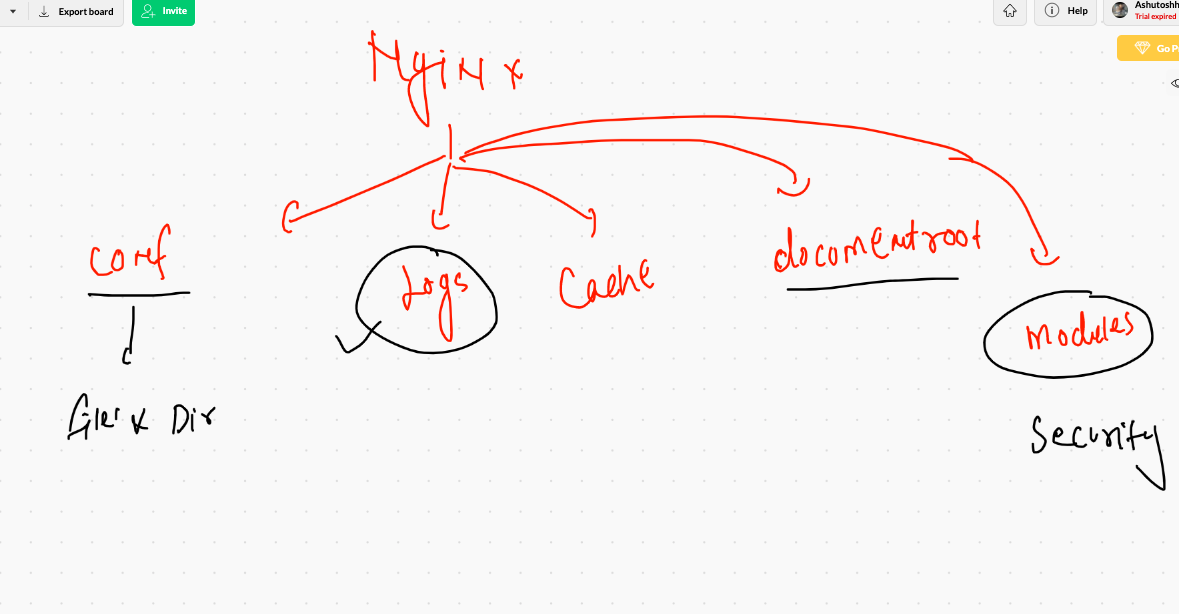 Export board
Invite
Help
Ashutoshh
Trial expired
Go P
NgiNx
conf
Logs
Cache
documentroot
modules
Dir
Security